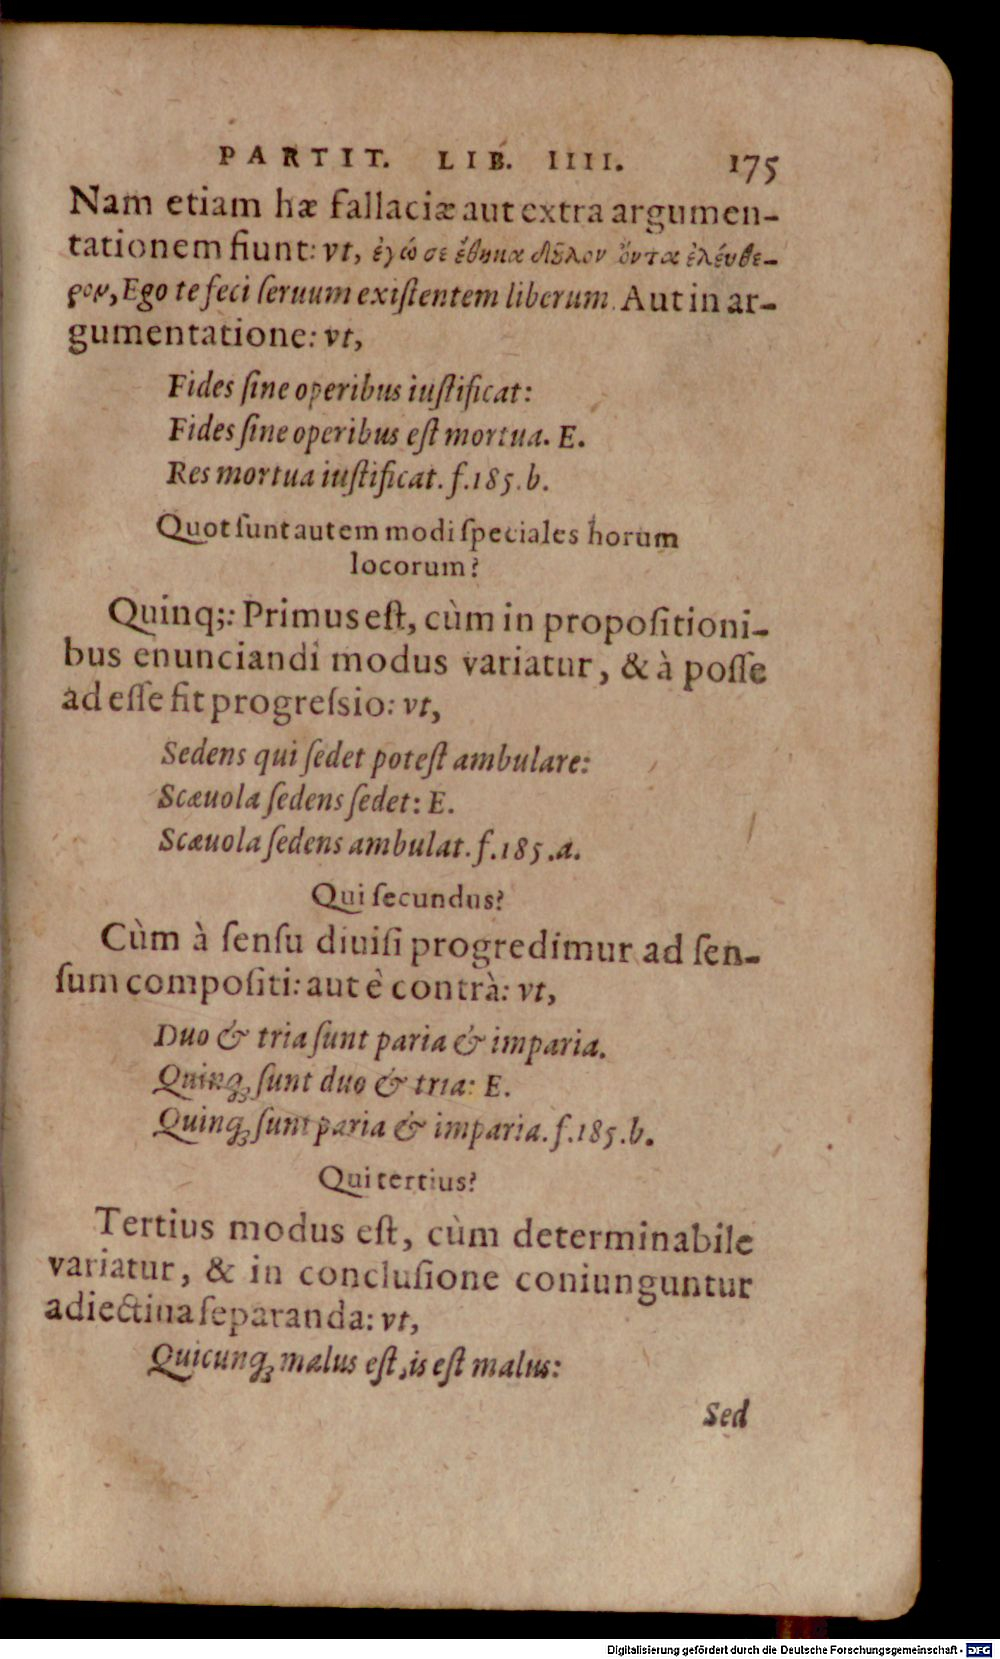 PARTIT. LIB. IIII. 175
Nam etiam hæ fallaciæ aut extra argumen-
tationem fiunt: vt, ἐγώ σε ἔθηκα δοῦλον ὄντα ἐλεύθε-
ρον, Ego te feci ſeruum exiſtentem liberum. Aut in ar-
gumentatione: vt,
Fides ſine operibus iuſtificat:
Fides ſine operibus eſt mortua. E.
Res mortua iuſtificat. f.185.b.
Quot ſunt autem modi ſpeciales horum
locorum?
Quinq;: Primus eſt, cùm in propoſitioni-
bus enunciandi modus variatur, & à poſſe
ad eſſe fit progreſsio: vt,
Sedens qui ſedet poteſt ambulare:
Scæuola ſedens ſedet: E.
Scæuola ſedens ambulat. f.185.a.
Qui ſecundus?
Cùm à ſenſu diuiſi progredimur ad ſen-
ſum compoſiti: aut è contrà: vt,
Duo & tria ſunt paria & imparia.
Quinq; ſunt duo & tria: E.
Quinq; ſunt paria & imparia. f.185.b.
Qui tertius?
Tertius modus eſt, cùm determinabile
variatur, & in concluſione coniunguntur
adiectiua ſeparanda: vt,
Quicunq; malus eſt, is eſt malus:
Sed
Digitalisierung gefördert durch die Deutsche Forschungsgemeinschaft - DFG